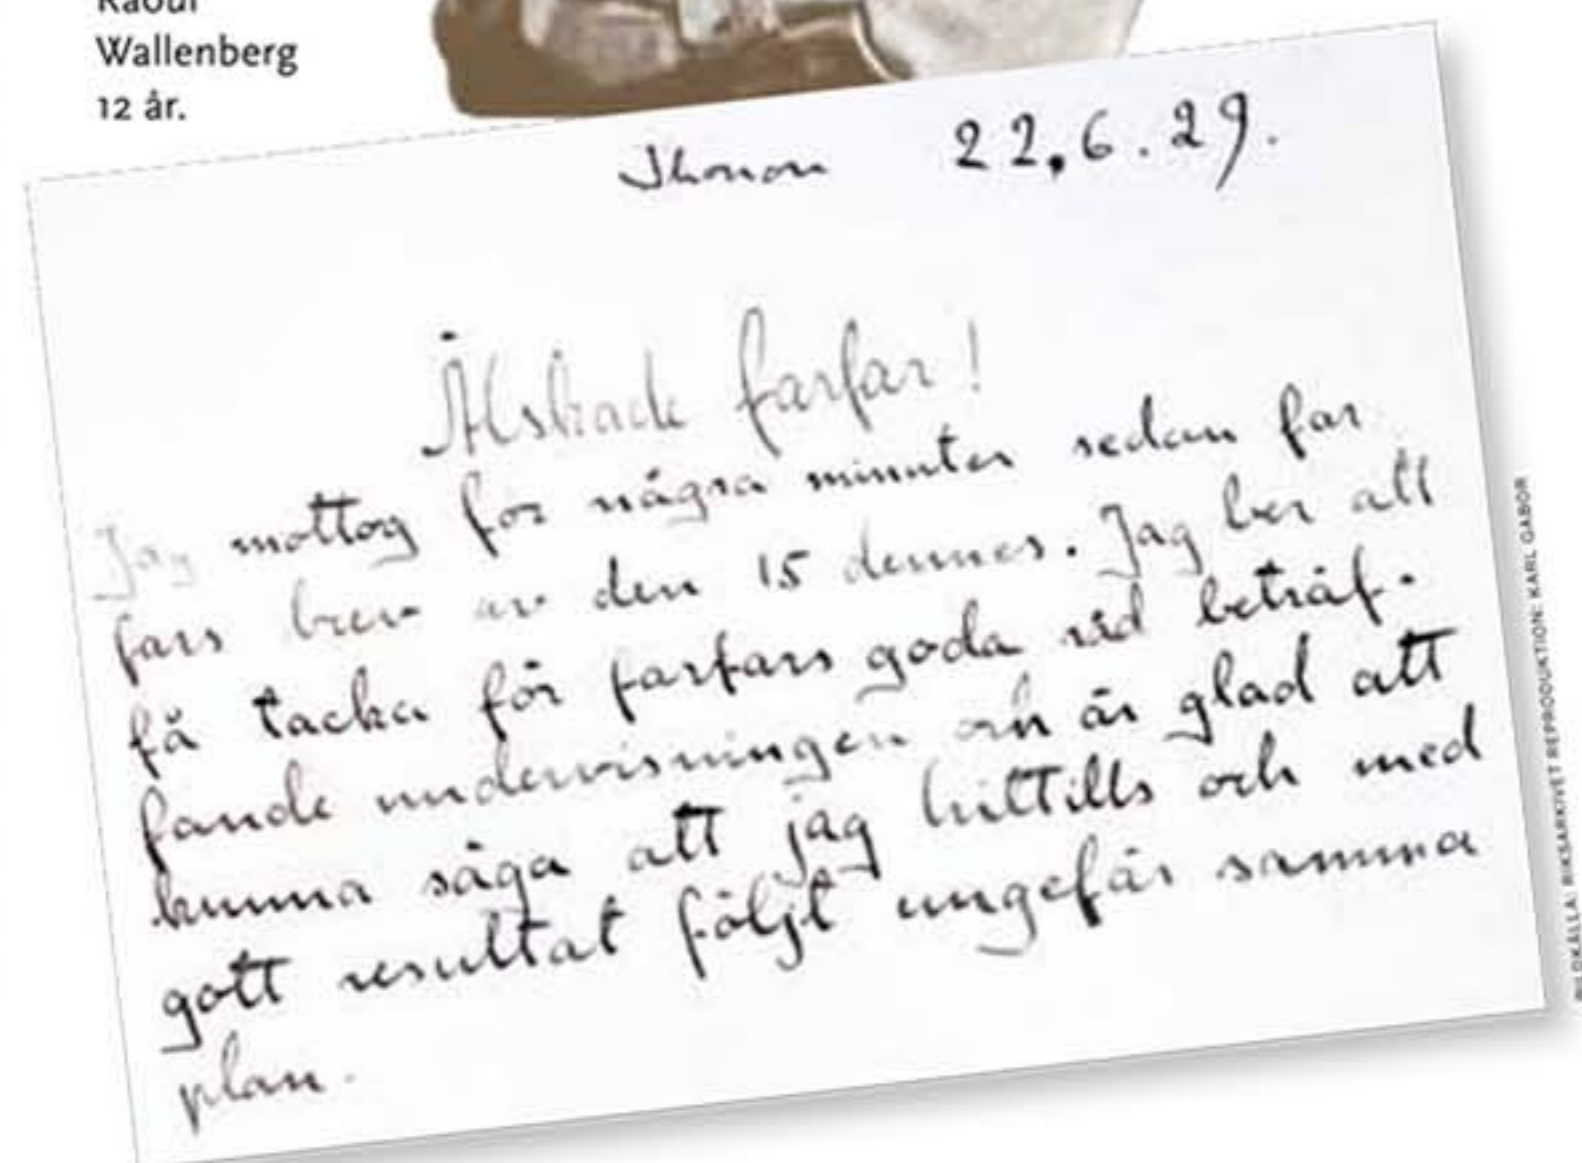 Raoul
Wallenberg
12 år.
Thonon 22.6.29.
Älskade farfar!
Jag mottog för några minuter sedan far
fars brev av den 15 dennes. Jag ber att
få tacka för farfars goda råd beträf-
fande undervisningen och är glad att
kunna säga att jag hittills och med
gott resultat följt ungefär samma
plan.
BILDKÄLLA: RIKSARKIVET REPRODUKTION: KARL GABOR